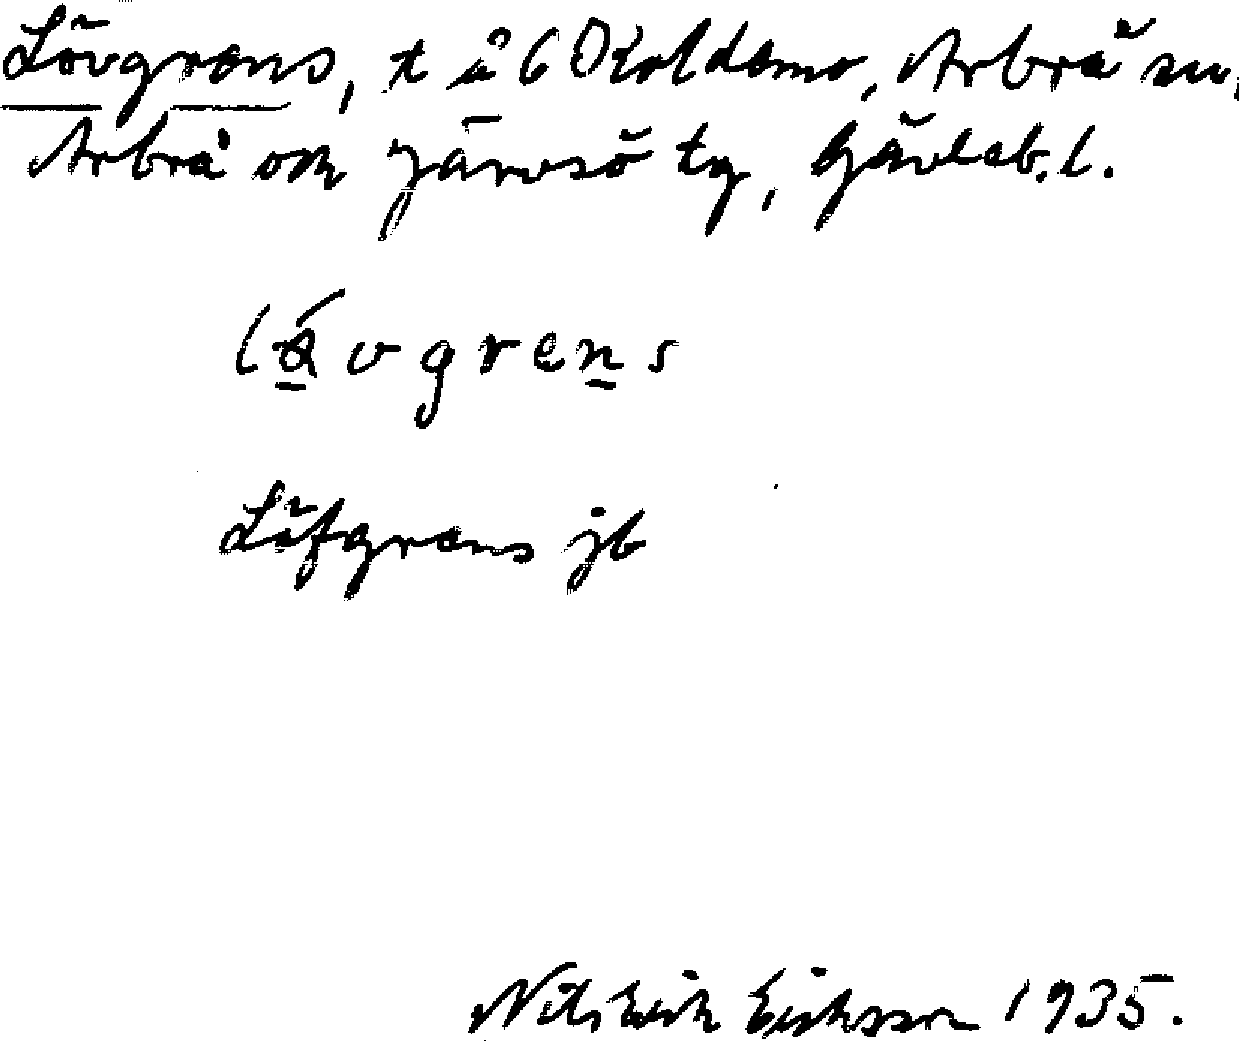 Lövgrens, t å 6 Koldemo, Arbrå sn,
Arbrå och Järvsö tg, Gävleb. l.
lövgrens
Löfgrens jb
Nils Erik Eriksson 1935.